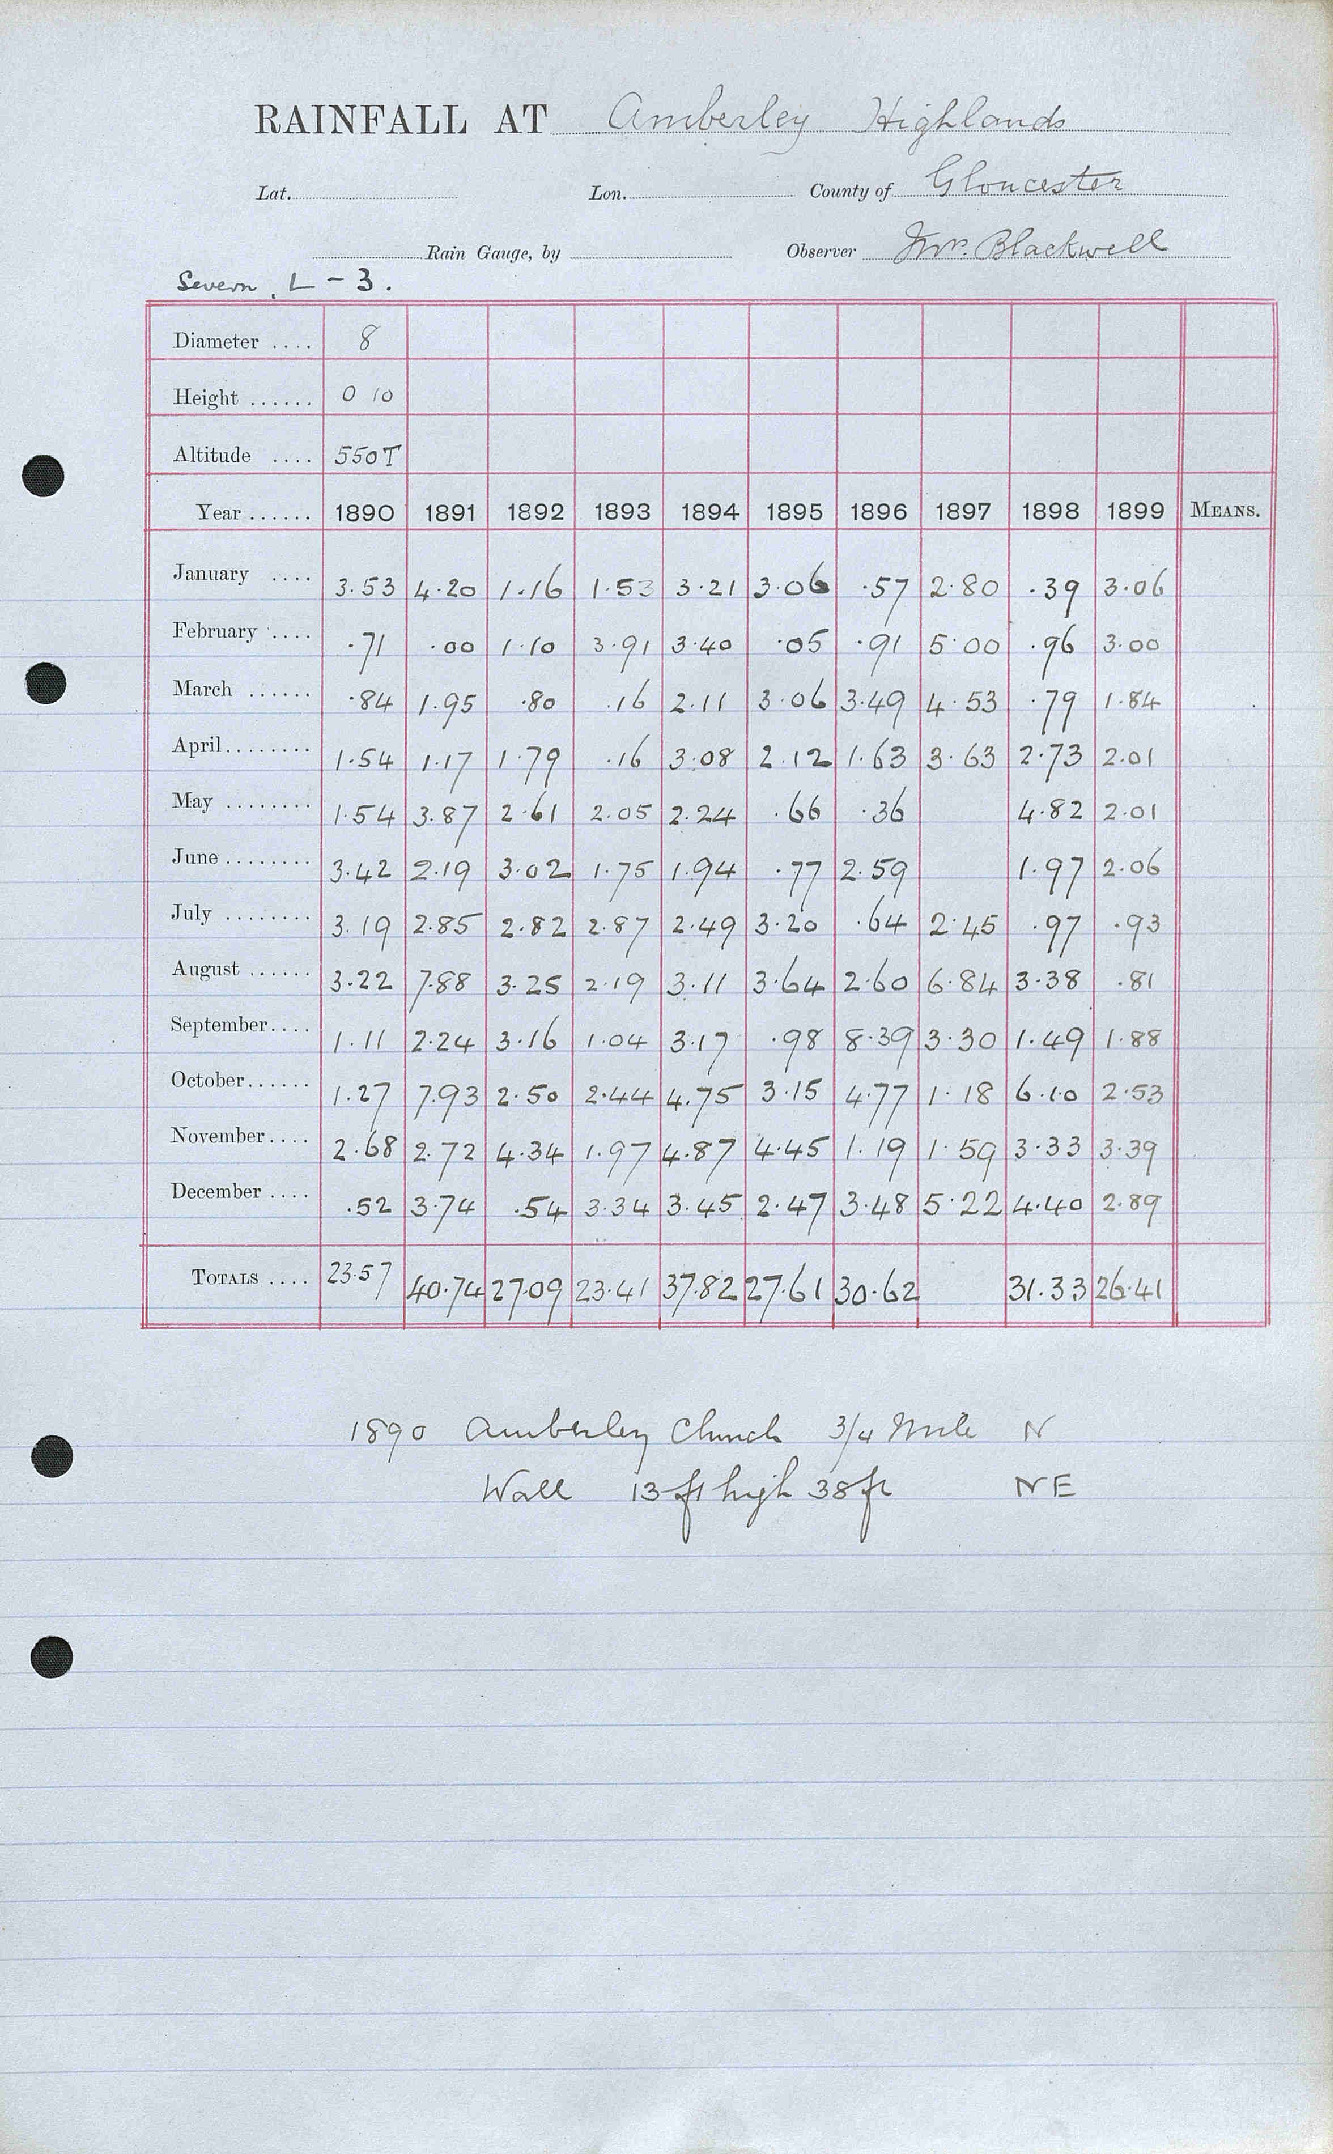 RAINFALL AT Amberley Highlands
Lat. Lon. County of Gloucester
Rain Gauge, by Observer Blackwell
Severn. L - 3.
Diameter .... 8
Height ...... 0 10
Altitude .... 550T
Year ...... 1890 1891 1892 1893 1894 1895 1896 1897 1898 1899 MEANS.
January .... 3.53 4.20 1.16 1.53 3.21 3.06 .57 2.80 .39 3.06
February .... .71 .00 1.10 3.91 3.40 .05 .91 5.00 .96 3.00
March ...... .84 1.95 .80 .16 2.11 3.06 3.49 4.53 .79 1.84
April ........ 1.54 1.17 1.79 .16 3.08 2.12 1.63 3.63 2.73 2.01
May ........ 1.54 3.87 2.61 2.05 2.24 .66 .36 4.82 2.01
June ........ 3.42 2.19 3.02 1.75 1.94 .77 2.59 1.97 2.06
July ........ 3.19 2.85 2.82 2.87 2.49 3.20 .64 2.45 .97 .93
August ...... 3.22 7.88 3.25 2.19 3.11 3.64 2.60 6.84 3.38 .81
September .... 1.11 2.24 3.16 1.04 3.17 .98 8.39 3.30 1.49 1.88
October ...... 1.27 7.93 2.50 2.44 4.75 3.15 4.77 1.18 6.10 2.53
November .... 2.68 2.72 4.34 1.97 4.87 4.45 1.19 1.59 3.33 3.39
December .... .52 3.74 .54 3.34 3.45 2.47 3.48 5.22 4.40 2.89
TOTALS .... 23.57 40.74 27.09 23.41 37.82 27.61 30.62 31.33 26.41
1890 Amberley Church 3/4 Mile N
Wall 13 ft high 38 ft NE